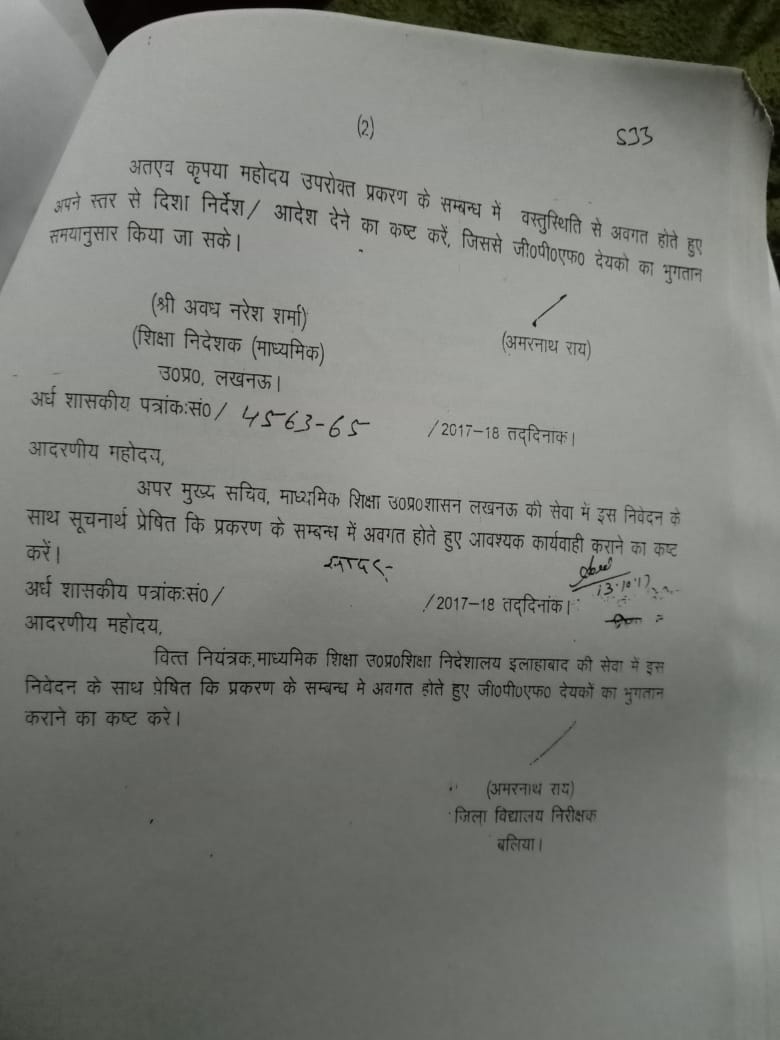 (2)
533
अतएव कृपया महोदय उपरोक्त प्रकरण के सम्बन्ध में वस्तुस्थिति से अवगत होते हुए
अपने स्तर से दिशा निर्देश/ आदेश देने का कष्ट करें, जिससे जी0पी0एफ0 देयको का भुगतान
समयानुसार किया जा सके।
(श्री अवध नरेश शर्मा)
(अमरनाथ राय)
(शिक्षा निदेशक (माध्यमिक)
उ0प्र0, लखनऊ।
अर्ध शासकीय पत्रांक:सं0/ 4563-65 /2017-18 तद्दिनांक।
आदरणीय महोदय,
अपर मुख्य सचिव, माध्यमिक शिक्षा उ0प्र0शासन लखनऊ की सेवा में इस निवेदन के
साथ सूचनार्थ प्रेषित कि प्रकरण के सम्बन्ध में अवगत होते हुए आवश्यक कार्यवाही कराने का कष्ट
करें।
सादर-
13.10.17
अर्ध शासकीय पत्रांक:सं0/ /2017-18 तद्दिनांक।
आदरणीय महोदय,
वित्त नियंत्रक,माध्यमिक शिक्षा उ0प्र0शिक्षा निदेशालय इलाहाबाद की सेवा में इस
निवेदन के साथ प्रेषित कि प्रकरण के सम्बन्ध मे अवगत होते हुए जी0पी0एफ0 देयकों का भुगतान
कराने का कष्ट करे।
(अमरनाथ राय)
जिला विद्यालय निरीक्षक
बलिया।